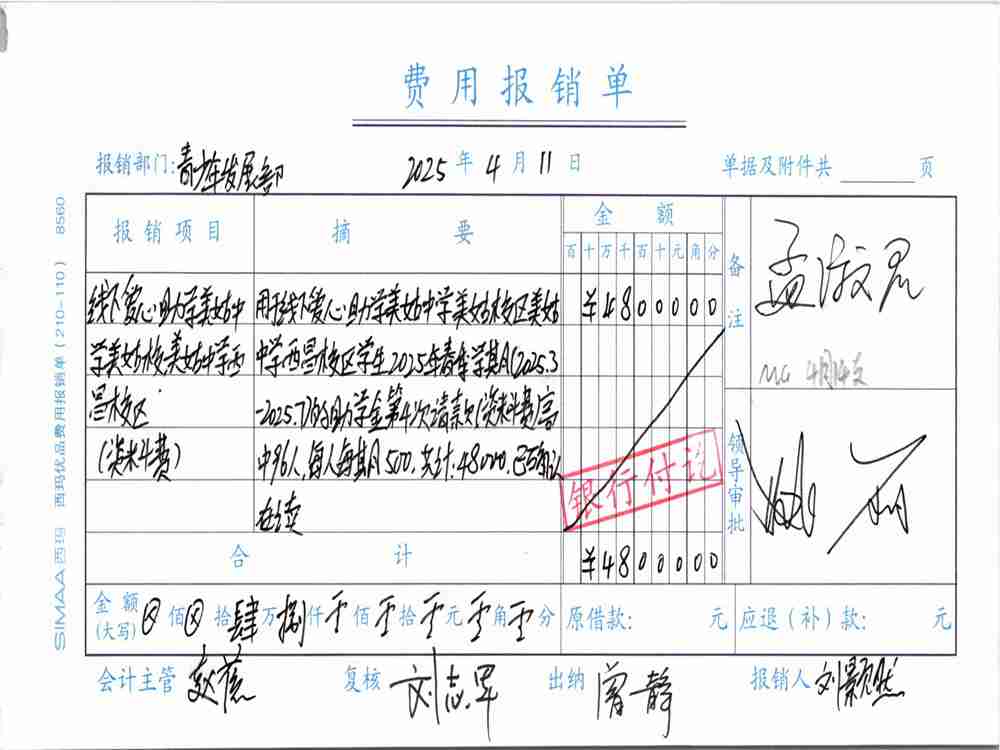 费用报销单
报销部门: 青少年发展部 2025 年 4 月 11 日 单据及附件共 页
报销项目 摘要 金额
百 十 万 千 百 十 元 角 分
备注
孟淑君
4月
线下爱心助学美姑中 用于线下爱心助学美姑中学美姑校区美姑 ¥4800000
学美姑校美姑中学西 中学西昌校区学生2025年春季学期(2025.3
昌校区 -2025.7)的助学金第4次请款(柴米斗费)高
(柴米斗费) 中96人,每人每期500,共计:48000,已确认
在读
银行付讫
领导审批
合计 ¥4800000
金额(大写) ⊗ 佰 ⊗ 拾 肆 万 捌 仟 零 佰 零 拾 零 元 零 角 零 分 原借款: 元 应退(补)款: 元
会计主管 赵蕊 复核 刘志军 出纳 曾静 报销人 刘颢然
SIMAA西玛 西玛优品费用报销单(210-110) 8560